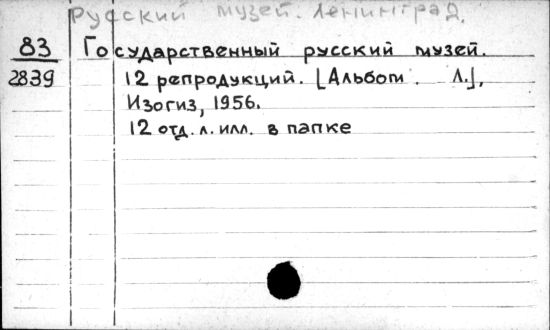 Русский музей. Ленинград.
83 Государственный русский музей.
2839 12 репродукций. [Альбом. Л.],
Изогиз, 1956.
12 отд. л. илл. в папке